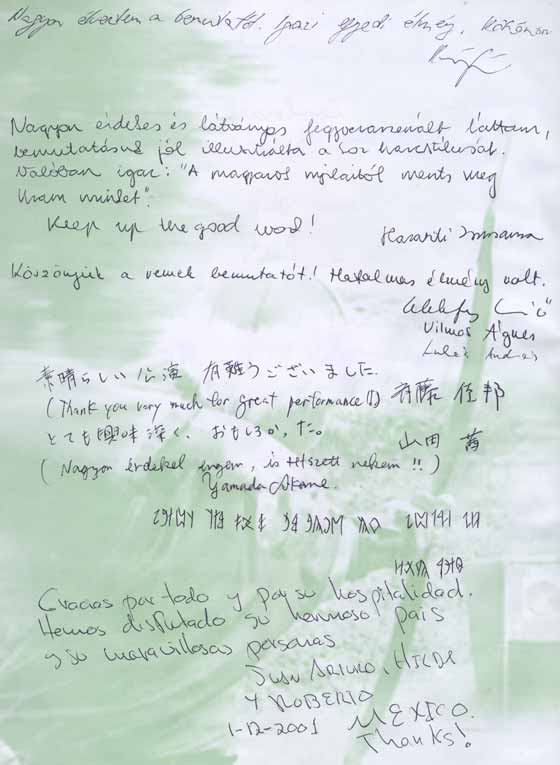 Nagyon élveztem a bemutatót. Igazi egyedi élmény. Köszönöm
Nagyon érdekes és látványos fegyverarzenált láttam,
bemutatásuk jól illusztrálta a kor harcstílusát.
Valóban igaz: "A magyarok nyilaitól ments meg
Uram minket".
Keep up the good word!
Köszönjük a remek bemutatót! Hatalmas élmény volt.
Vilmos Ágnes
素晴らしい公演 有難うございました.
(Thank you very much for great performance!!) 斉藤 佳邦
とても興味深く、おもしろかった。 山田 茜
(Nagyon érdekel engem, is tetszett nekem!!)
Yamada Akane.
Gracias por todo y por su hospitalidad.
Hemos disfrutado su hermoso país
y su maravillosas personas
Arturo, Hilda
y Roberto
1-12-2001 MEXICO.
Thanks!